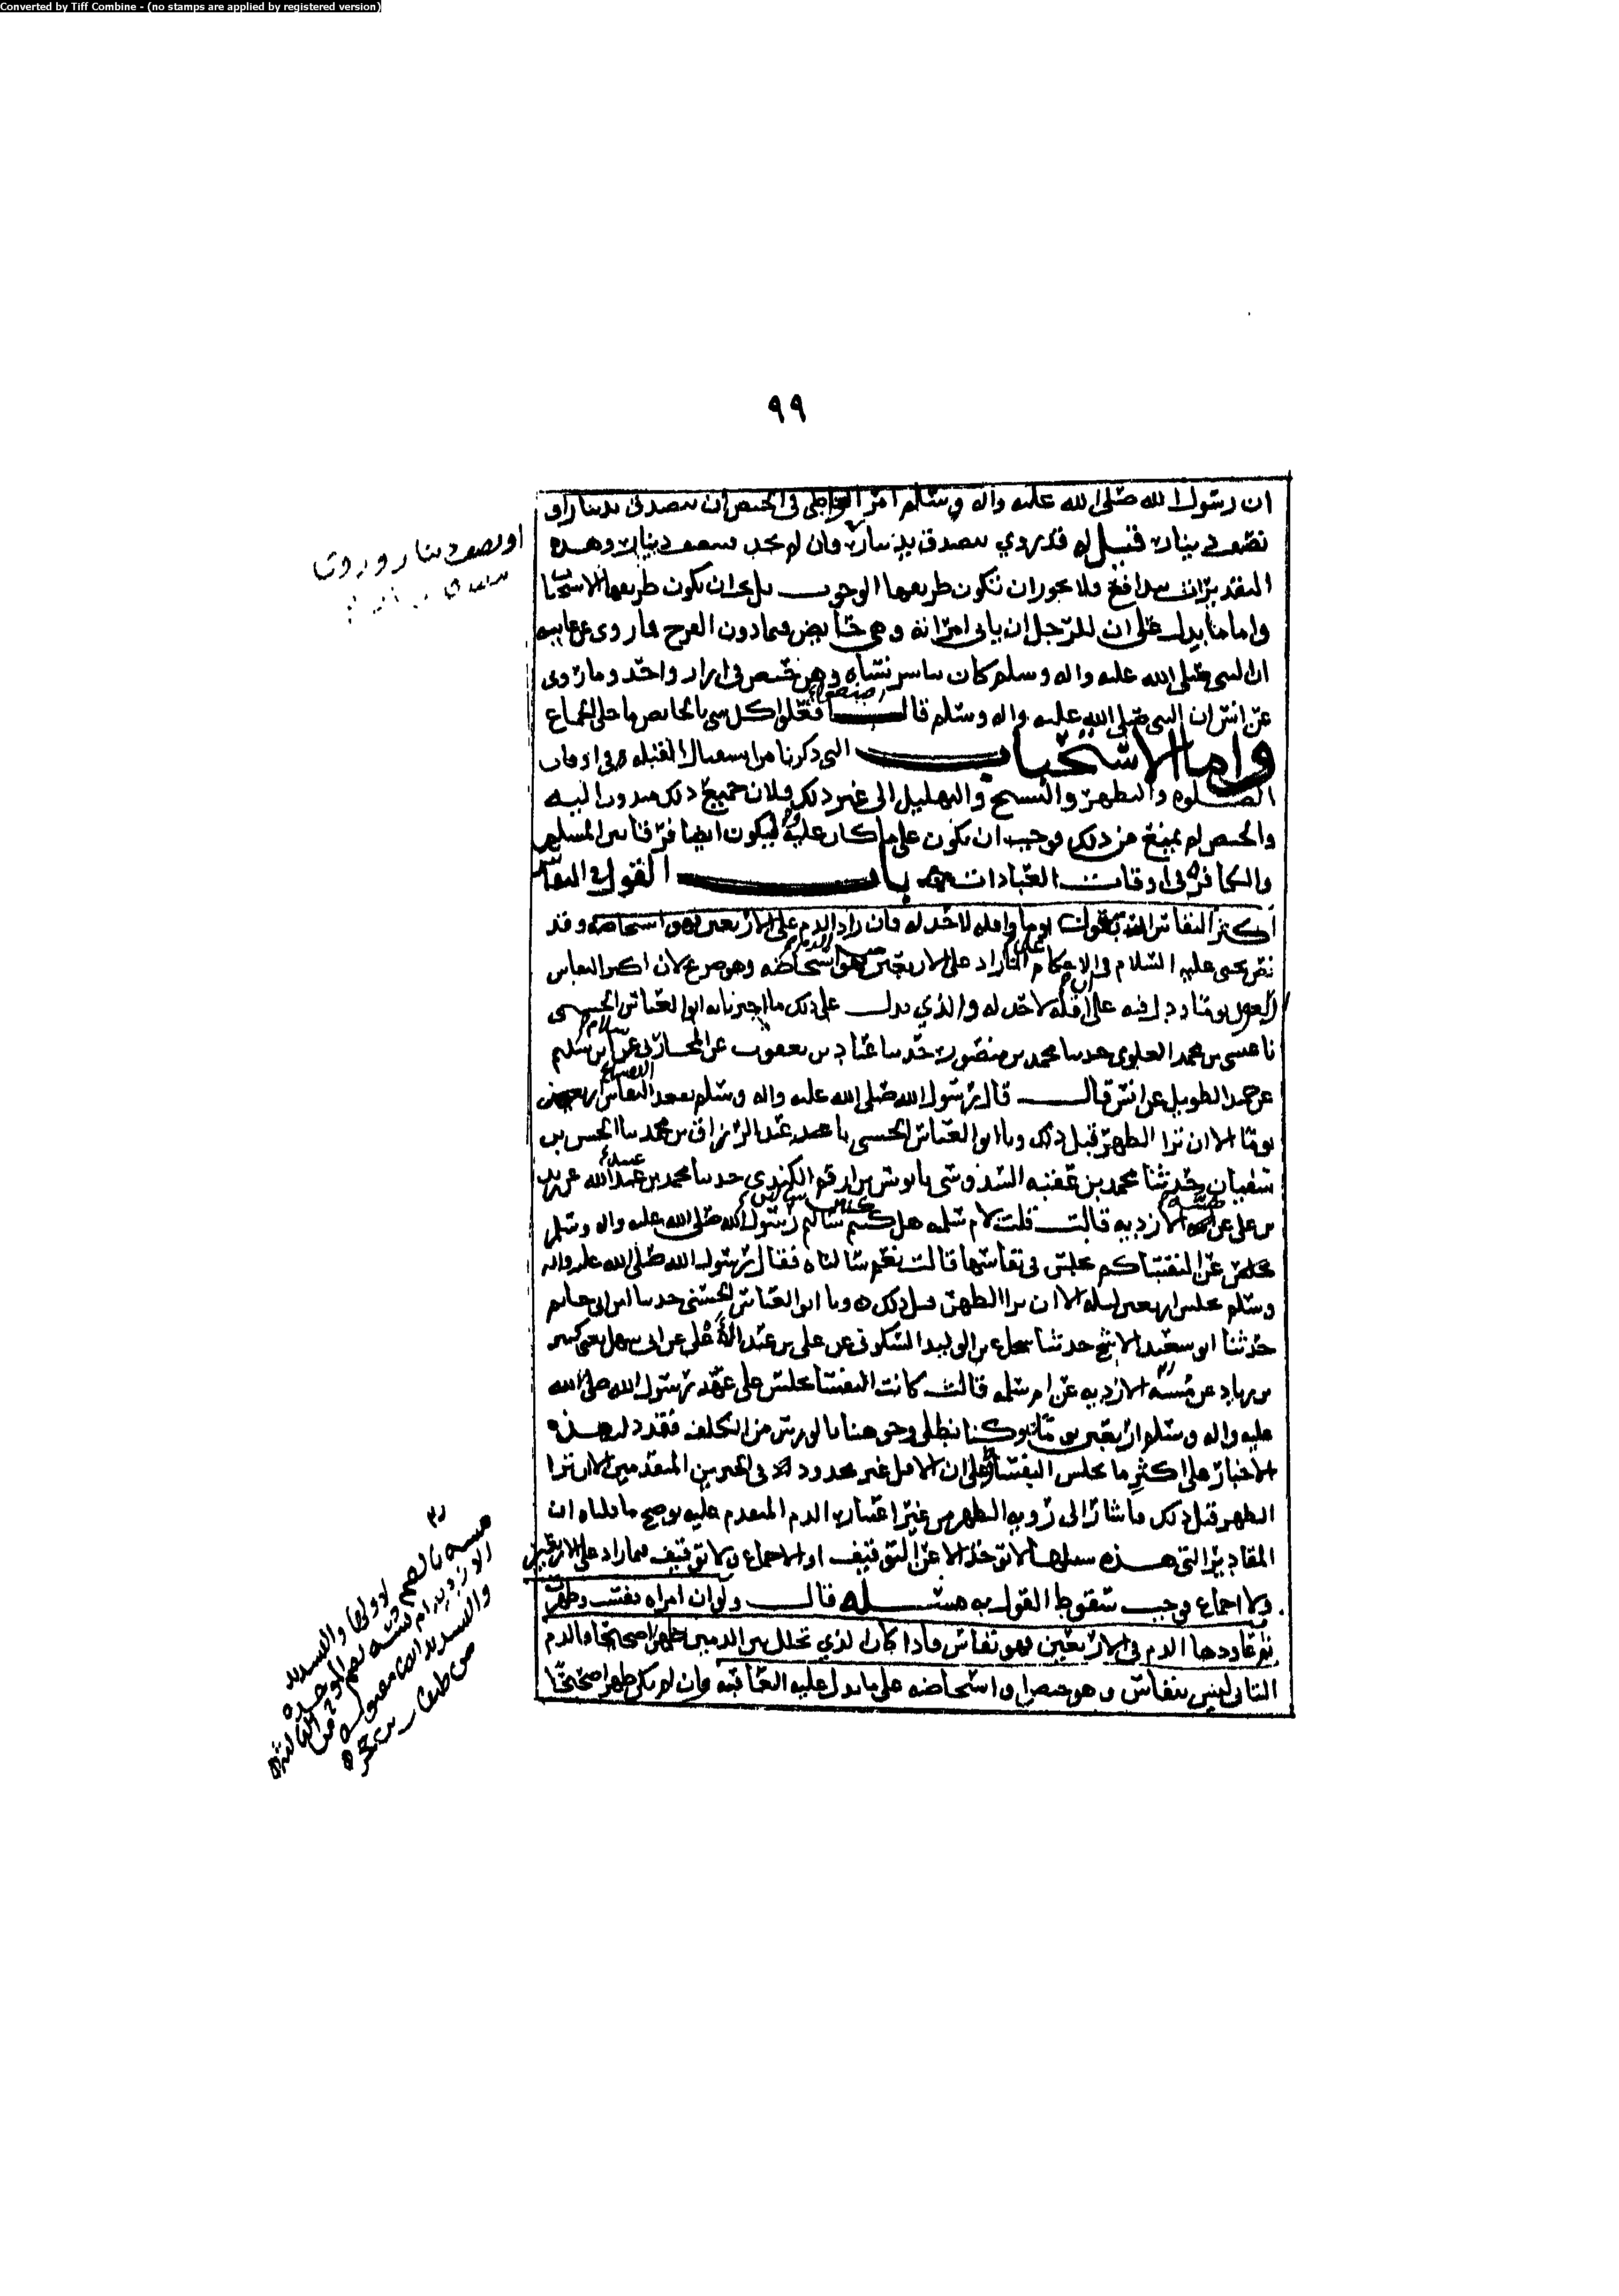 Converted by Tiff Combine - (no stamps are applied by registered version)
٩٩
ان رسول الله صلى الله عليه واله وسلم امر الواطي في الحيض ان يتصدق بدينار او
نصف دينار فقيل له قد روي يتصدق بدينار وان لم يجد فنصف دينار وهذه
التقديرات تتدافع ولا يجوز ان تكون طريقها الوجوب بل يجب ان يكون طريقها الاستحبا
واما ما يدل على ان للرجل ان ياتي امرأته وهي حايض فيما دون الفرج فما روي عن عايشه
ان النبي صلى الله عليه واله وسلم كان يباشر نساه وهن حيض في ازار واحد وما روي
عن انس ان النبي صلى الله عليه واله وسلم قال افعلوا كل شي بالحايض ما خلا الجماع
واما الاستحباب التي ذكرنا من استقبال القبلة في اوقات
الصلوة والتطهر والتسبيح والتهليل الى غير ذلك فلان جميع ذلك مندوب اليه
والحيض لم يمنع من ذلك فوجب ان يكون على ما كان عليه وليكون ايضا فرقا بين المسلمه
والكافرة في اوقات العبادات باب القول في النفاس
اكثر النفاس اربعون يوما واقله لا حد له فان زاد الدم على الاربعين فهو استحاضه وقد
نص يحيى عليه السلام في الاحكام على ان الدم الزايد على الاربعين استحاضه وهو صرح لان اكثر النفاس
اربعون يوما ودل فيه على ان اقله لا حد له والذي يدل على ذلك ما اخبرنا به ابو العباس الحسني
نا عيسى بن محمد العلوي حدثنا محمد بن منصور حدثنا عباد بن يعقوب عن المحاربي عن سلام بن سليم
عن حميد الطويل عن انس قال قال رسول الله صلى الله عليه واله وسلم تقعد النفاس اربعين
يوما الا ان ترا الطهر قبل ذلك ونا ابو العباس الحسني نا عبد الرزاق بن محمد نا الحسن بن
سفيان حدثنا محمد بن عقبه السدوسي نا يونس بن ارقم الكندي حدثنا محمد بن عبيد الله عن زيد
بن علي عن مسه الازديه قالت قلت لام سلمه هل كنتن سالتن رسول الله صلى الله عليه واله وسلم
عن النفسا كم تجلس في نفاسها قالت نعم سالناه فقال رسول الله صلى الله عليه واله
وسلم تجلس اربعين ليله الا ان ترا الطهر قبل ذلك ونا ابو العباس الحسني حدثنا ابن ابي حاتم
حدثنا ابو سعيد الاشج حدثنا شجاع بن الوليد السكوني عن علي بن عبد الاعلى عن ابي سهل يعني كثير
بن زياد عن مسه الازديه عن ام سلمه قالت كانت النفسا تجلس على عهد رسول الله صلى الله
عليه واله وسلم اربعين يوما وكنا نطلي وجوهنا بالورس من الكلف فقد دلت هذه
الاخبار على اكثر ما تجلس النفسا وعلى ان الاقل غير محدود في الخبرين المتقدمين الا ان ترا
الطهر قبل ذلك فاشار الى روية الطهر من غير اعتبار الدم المتقدم عليه يوضح ما قلناه ان
المقادير التي هذه سبيلها لا توخذ الا عن التوقيف او الاجماع ولا توقيف فيما زاد على الاربعين
ولا اجماع فوجب سقوط القول به مسئله قال ولو ان امراه نفست وطهرت
ثم عاودها الدم في الاربعين فهو نفاس فاذا كان الذي تخلل بين الدمين طهرا صحيحا فالدم
الثاني ليس بنفاس وهو حيض او استحاضه على ما يدل عليه العاقبه وان لم يكن طهرا صحيحا
او نصف دينار وروينا